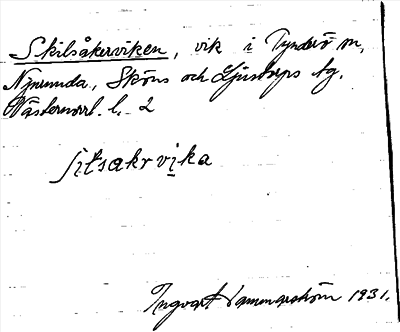 Skilsåkerviken, vik i Tynderö sn,
Njurunda, Sköns och Ljustorps tg.
Västernorrl. l. 2
ʃilsakrvika
Ingvart 1931.